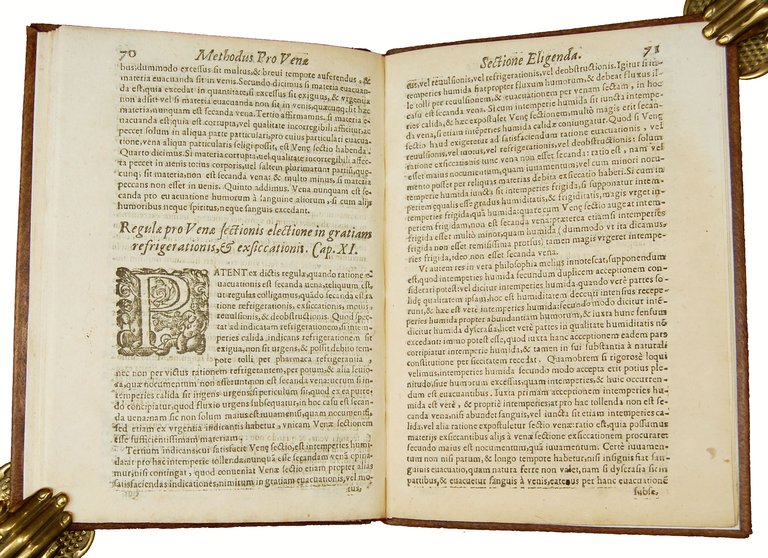 70 Methodus Pro Venæ
bus: dummodo excessus sit multus, & breui tempore auferendus, &
materia euacuanda sit in venis. Secundo dicimus si materia euacuan-
da est, quia excedat in quantitate, si excessus sit exiguus, & vrgentia
non adsit vel si materia euacuanda non sit in venis, quæcunque sit hæc
materia, nunquam est secanda vena. Tertio affirmamus, si materia
euacuanda est, quia est corrupta, vel qualitate incorregibili afficitur, ac
peccet solum in aliqua parte particulari, pro cuius particulari euacua-
tione, vena aliqua particularis seligi possit, est Venę sectio habenda.
Quarto dicimus. Si materia corrupta, uel qualitate incorrigibili affe-
cta peccet in uenis totius corporis, vel saltem plurimarum partium, que-
cunque sit materies, non est secanda vena: & multo minus, si materia
peccans non esset in uenis. Quinto addimus. Vena nunquam est se-
canda pro euacuatione humorum à sanguine aliorum, si cum alijs
humoribus neque spiritus, neque sanguis excedant.
Regulæ pro Venæ sectionis electione in gratiam
refrigerationis, & exsiccationis. Cap. XI.
PATENT ex dictis regulæ, quando ratione e-
uacuationis est secanda uena, reliquum est,
ut regulas colligamus, quãdo secanda est ra
tione refrigerationis, exsiccationis, motus,
reuulsionis, & deobstructionis. Quod spec-
tat ad indicatam refrigerationem, si intem-
peries calida, indicans refrigerationem sit
exigua, non sit urgens, & possit debito tem-
pore tolli per pharmaca refrigerantia,
nec non per victus rationem refrigerantem, per potum, & alia feiuo-
sa, quæ nocumentum non asserunt non est secanda uena: uerum si in-
temperies calida sit ingens, urgens, si periculum sit, quod ex ea putre-
do concipiatur, quod fluxio urgens subsequatur, in hoc casu est secan-
da uena: nam sic non solum maius est iuuamentum, quam nocumentũ,
sed etiam ex vrgentia indicantis habetur, vnicam Venæ sectionem
esse sufficientissimam materiam.
Tertium indicans, cui satisfacit Venę sectio, est intemperies humi-
da: at pro hac intemperie tollenda, nunquam esse secandam venam existi-
mamur, nisi contingat, quod conueniat Venæ sectio etiam propter alias
satisfaciendas indicationes, nimirum in gratiam euacuationis, vel mo-
tus,
Sectione Eligenda. 71
tus, vel reuulsionis, vel refrigerationis, vel deobstructionis. Igitur si in-
temperies humida fiat propter fluxum humorum, & debeat fluxus il-
le tolli per reuulsionem, & euacuationem per venam sectam, in hoc
casu est secanda vena. Si cum intemperie humida sit iuncta intempe-
ries calida, & hæc expostulet Venę sectionem, multò magis erit secan-
da vena, si etiam intẽperies humida calidæ coniungatur. Quod si Venę
sectio haud exigeretur ad satisfaciendum ratione euacuationis, vel
reuulsionis, vel motus, vel refrigerationis, vel deobstructionis, solum
ratione exsiccationis tunc vena non esset secanda: ratio est, nam vel
maius esset nocumentum, quam iuuamentum, vel cum minori nocu-
mento posset per reliquas materias debita exsiccatio haberi. Si cum in-
temperie humida iuncta sit intemperies frigida, si supponatur intem-
periem equalis esse gradus humiditatis, & frigiditatis, magis vrget in-
temperies frigida, quã humida: quare cum Venę sectio augeat intem-
periem frigidam, non est secanda vena: præterea etiamsi intemperies
frigida esset minus magna, quam humida (dummodo vt ita dicamus,
frigida non esset remissima prorsus) tamen magis vrgeret intemperies
frigida, ideo non esset secanda vena.
Vt autem res in vera philosophia melius innotescat, supponendum
est, quod intemperies humida secundum duplicem acceptionem con-
siderari potest: vel dicitur intemperies humida secundum verè possi-
dẽ qualitatem ipsam, hoc est humiditatem decenti intensius recepe-
rint, hęc est verè intemperies humida: secundo modo dicitur intem-
peries humida propter abundantiam humorum, & iuxta hunc sensum
dicitur humida dyscrasia, licet verè partes in qualitate humiditatis nõ
excedant: immo potest esse, quod iuxta hanc acceptionem eadem pars
corripiatur intemperie humida, & tamen in sui substantia à naturali
constitutione per siccitatem recedat. Quamobrem si rigorosè loqui
velimus, intemperies humida secundo modo accepta erit potius ple-
nitudo, siue humorum excessus, quam intemperies, & huic occurren-
dum est euacuando. Iuxta primam acceptionem intemperies humi-
da est verè, & propriè intemperies; at pro hac tollenda non est secanda
venas, nisi abundet sanguis, vel iuncta sit etiam intemperies ca-
lida, vel alia ratione expostuletur sectio venæ: ratio est, quia possumus
materijs exsiccantibus aliis à venæ sectione exsiccationem procurare:
secundo maius est nocumentum, quàm iuuamentum. Certè iuuamen-
tum non nisi parum, & longo tempore habetur, nisi insignis fiat san-
guinis euacuatio, quam natura ferre non valet, nam si dyscrasia sit in
partibus, & euacuetur sanguis à venis, eatenus per hanc euacuationem
subse-